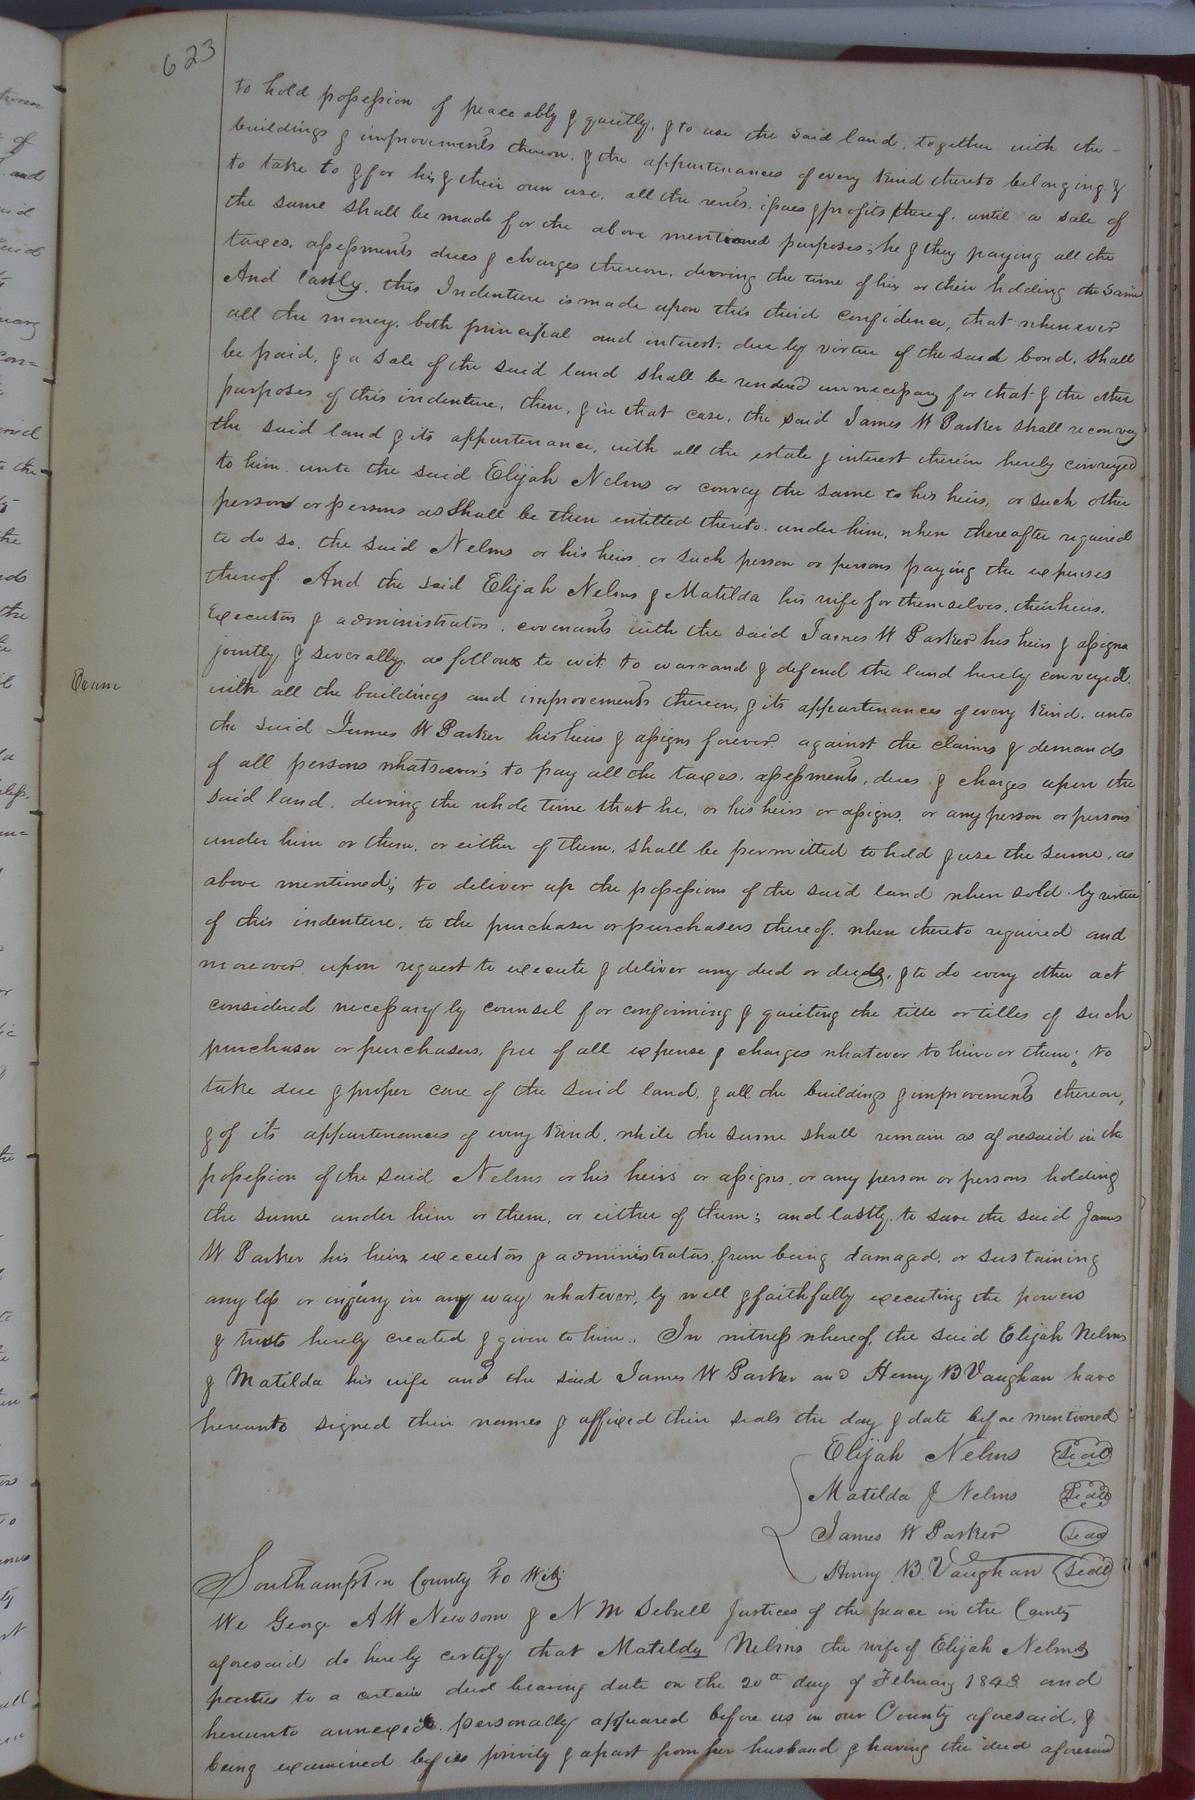 623
to hold possession of peace ably & quietly, & to use the said land, together with the
buildings & improvements thereon, & the appurtenances of every kind thereto belonging &
to take to & for his & their own use, all the rents, issues & profits thereof, until a sale of
the same shall be made for the above mentioned purposes; he & they paying all the
taxes, assessments dues & charges thereon, during the time of his or their holding the same
And lastly, this Indenture is made upon this third confidence, that whenever
all the money, both principal and interest, due by virtue of the said bond, shall
be paid, & a sale of the said land shall be rendered unnecessary for that & the other
purposes of this indenture, then, & in that case, the said James W Parker shall reconvey
the said land & its appurtenance, with all the estate & interest therein hereby conveyed
to him unto the said Elijah Nelms or convey the same to his heirs, or such other
person or persons as shall be then entitled thereto under him, when thereafter required
to do so, the said Nelms or his heirs or such person or persons paying the expenses
thereof. And the said Elijah Nelms & Matilda his wife for themselves, their heirs,
Executors & administrators, covenants with the said James W Parker his heirs & assigns
jointly & severally, as follows to wit to warrand & defend the land hereby conveyed
Exam
with all the buildings and improvements thereon, & its appurtenances of every kind, unto
the said James W Parker his heirs & assigns forever against the claims & demands
of all persons whatsoever; to pay all the taxes, assessments, dues & charges upon the
said land, during the whole time that he, or his heirs or assigns, or any person or persons
under him or them, or either of them, shall be permitted to hold & use the same, as
above mentioned; to deliver up the possessions of the said land when sold by virtue
of this indenture, to the purchaser or purchasers thereof, when thereto required and
moreover upon request to execute & deliver any deed or deeds, & to do every other act
considered necessary by counsel for confirming & quieting the title or titles of such
purchaser or purchasers, free of all expense & charges whatever to him or them; to
take due & proper care of the said land, & all the buildings & improvements thereon,
& of its appurtenances of every kind, while the same shall remain as aforesaid in the
possession of the said Nelms or his heirs or assigns, or any person or persons holding
the same under him or them, or either of them; and lastly, to save the said James
W Parker his heirs executors & administrators, from being damaged, or sustaining
any loss or injury in any way whatever, by well & faithfully executing the powers
& trusts hereby created & given to him. In witness whereof, the said Elijah Nelms
& Matilda his wife and the said James W Parker and Henry B Vaughan have
hereunto signed their names & affixed their seals the day & date before mentioned
Elijah Nelms Seal
Matilda J Nelms Seal
James W Parker Seal
Henry B. Vaughan Seal
Southampton County To Wit;
We George A W Newsom & N M Sebrell Justices of the peace in the County
aforesaid do hereby certify that Matildy Nelms the wife of Elijah Nelms
parties to a certain deed bearing date on the 20th day of February 1843 and
hereunto annexed, personally appeared before us in our County aforesaid, &
being examined by us privily & apart from her husband & having the deed aforesaid